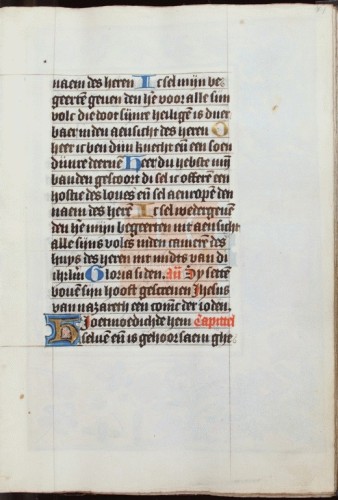 naem des heren Ic sel mijn be
geerten geuen den he voor alle sijn
volc die doot sijnre heiligen is duer
baer in den aensicht des heren O
heer ic ben dijn knecht en een soen
dijnre deernen Heer du hebste mij
banden gescoort di sel ic offeren een
hostie des loues en sel aenropen den
naem des here Ic sel wedergeuen
den he mijn begeerten int aensicht
alle sijns volcs inden camere des
huys des heren int midts van di
ihrlm Gloria si den. An Sy setten
bouen sijn hooft gescreuen Jhesus
van nazareth een conic der ioden.
Hi oetmoedichde hem Capittel
seluen en is gehoorsaem ghe